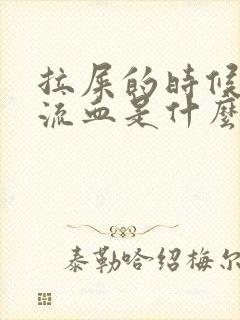 拉屎的時候
流血是什麼
泰勒哈绍梅尔